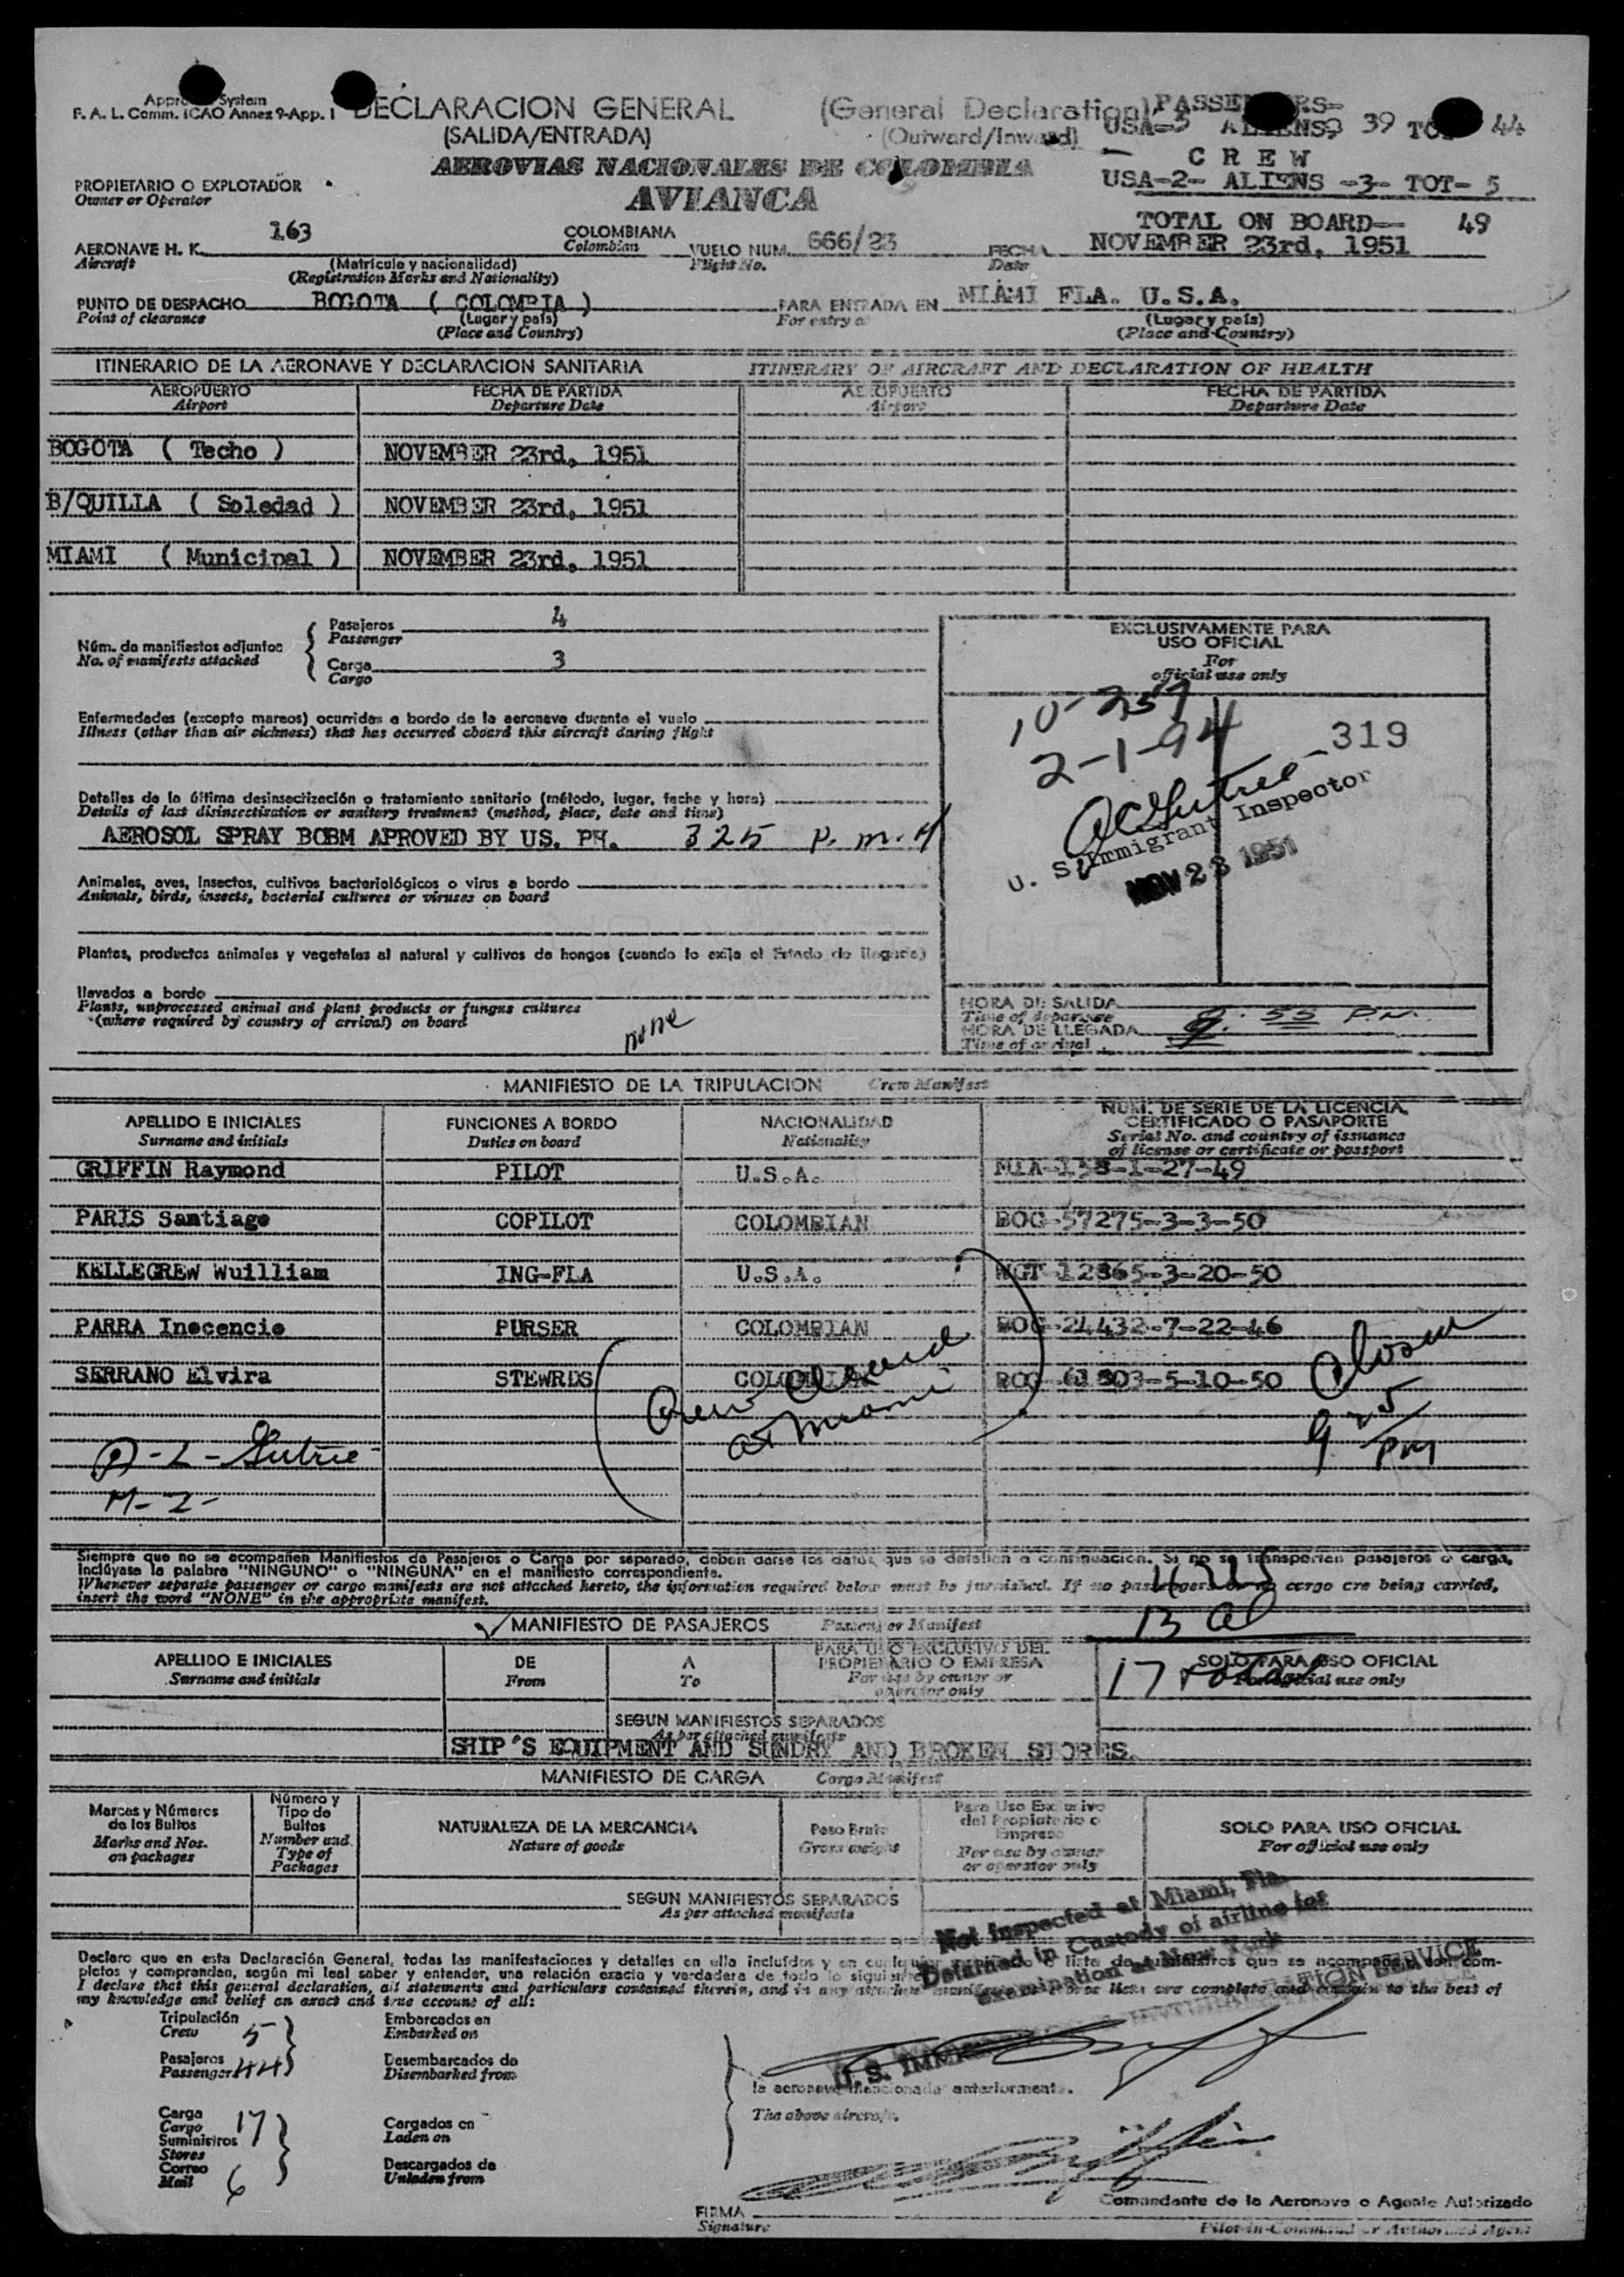 System
F. A. L. Comm. ICAO Annex 9-App. 1
DECLARACION GENERAL (General Declaration)
(SALIDA/ENTRADA) (Outward/Inward)
USA-5 39 44
AEROVIAS NACIONALES DE COLOMBIA
AVIANCA
CREW
USA-2- ALIENS -3- TOT- 5
PROPIETARIO O EXPLOTADOR
Owner or Operator
TOTAL ON BOARD-- 49
AERONAVE H. K. 163 COLOMBIANA VUELO NUM. 666/23 FECHA NOVEMBER 23rd, 1951
Aircraft Colombian Flight No. Date
(Matrícula y nacionalidad)
(Registration Marks and Nationality)
PUNTO DE DESPACHO BOGOTA ( COLOMBIA ) PARA ENTRADA EN MIAMI FLA. U.S.A.
Point of clearance (Lugar y país) For entry at (Lugar y país)
(Place and Country) (Place and Country)
ITINERARIO DE LA AERONAVE Y DECLARACION SANITARIA ITINERARY OF AIRCRAFT AND DECLARATION OF HEALTH
AEROPUERTO FECHA DE PARTIDA AEROPUERTO FECHA DE PARTIDA
Airport Departure Date Airport Departure Date
BOGOTA ( Techo ) NOVEMBER 23rd, 1951
B/QUILLA ( Soledad ) NOVEMBER 23rd, 1951
MIAMI ( Municipal ) NOVEMBER 23rd, 1951
Núm. de manifiestos adjuntos
No. of manifests attached
Pasajeros 4
Passenger
Carga 3
Cargo
EXCLUSIVAMENTE PARA
USO OFICIAL
For
official use only
Enfermedades (excepto mareos) ocurridas a bordo de la aeronave durante el vuelo
Illness (other than air sickness) that has occurred aboard this aircraft during flight
10-257
2-1-94
319
U. S. Immigrant Inspector
NOV 23 1951
Detalles de la última desinsectización o tratamiento sanitario (método, lugar, fecha y hora)
Details of last disinsectisation or sanitary treatment (method, place, date and time)
AEROSOL SPRAY BOBM APROVED BY US. PH. 325 P.M.
Animales, aves, insectos, cultivos bacteriológicos o virus a bordo
Animals, birds, insects, bacterial cultures or viruses on board
Plantas, productos animales y vegetales al natural y cultivos de hongos (cuando lo exija el Estado de llegada)
llevados a bordo
Plants, unprocessed animal and plant products or fungus cultures
(where required by country of arrival) on board
none
HORA DE SALIDA
Time of departure
HORA DE LLEGADA
Time of arrival
55 P.M.
MANIFIESTO DE LA TRIPULACION Crew Manifest
APELLIDO E INICIALES FUNCIONES A BORDO NACIONALIDAD NUM. DE SERIE DE LA LICENCIA, CERTIFICADO O PASAPORTE
Surname and initials Duties on board Nationality Serial No. and country of issuance of license or certificate or passport
GRIFFIN Raymond PILOT U.S.A. MIA-158-1-27-49
PARIS Santiago COPILOT COLOMBIAN BOG-57275-3-3-50
KELLEGREW Wuilliam ING-FLA U.S.A. WGT-12865-3-20-50
PARRA Inocencio PURSER COLOMBIAN BOG-24432-7-22-46
SERRANO Elvira STEWRDS COLOMBIAN BOG-61803-5-10-50
Crew Cleared
at Miami
9 25 PM
M-2-
Siempre que no se acompañen Manifiestos de Pasajeros o Carga por separado, deben darse los datos que se detallan a continuación. Si no se transportan pasajeros o carga,
inclúyase la palabra "NINGUNO" o "NINGUNA" en el manifiesto correspondiente.
Whenever separate passenger or cargo manifests are not attached hereto, the information required below must be furnished. If no passengers or no cargo are being carried,
insert the word "NONE" in the appropriate manifest.
4 US
13 al
17 total
MANIFIESTO DE PASAJEROS Passenger Manifest
APELLIDO E INICIALES DE A PARA USO EXCLUSIVO DEL PROPIETARIO O EMPRESA SOLO PARA USO OFICIAL
Surname and initials From To For use by owner or operator only For official use only
SEGUN MANIFIESTOS SEPARADOS
As per attached manifests
SHIP'S EQUIPMENT AND SUNDRY AND BROKEN STORES.
MANIFIESTO DE CARGA Cargo Manifest
Marcas y Números de los Bultos Número y Tipo de Bultos NATURALEZA DE LA MERCANCIA Peso Bruto Para Uso Exclusivo del Propietario o Empresa SOLO PARA USO OFICIAL
Marks and Nos. on packages Number and Type of Packages Nature of goods Gross weight For use by owner or operator only For official use only
SEGUN MANIFIESTOS SEPARADOS
As per attached manifests
Not Inspected at Miami, Fla.
Detained in Custody of airline for
examination at New York
U. S. IMMIGRATION SERVICE
Declaro que en esta Declaración General, todas las manifestaciones y detalles en ella incluídos y en cualquier lista de suministros que se acompaña, son com-
pletos y comprenden, según mi leal saber y entender, una relación exacta y verdadera de todo lo siguiente
I declare that this general declaration, all statements and particulars contained therein, and in any attached are complete and to the best of
my knowledge and belief an exact and true account of all:
Tripulación Embarcados en
Crew 5 Embarked on
Pasajeros Desembarcados de
Passenger 44 Disembarked from
la aeronave mencionada anteriormente.
The above aircraft.
Carga
Cargo 17 Cargados en
Suministros Laden on
Stores
Correo Descargados de
Mail 6 Unladen from
FIRMA
Signature
Comandante de la Aeronave o Agente Autorizado
Pilot-in-Command or Authorized Agent